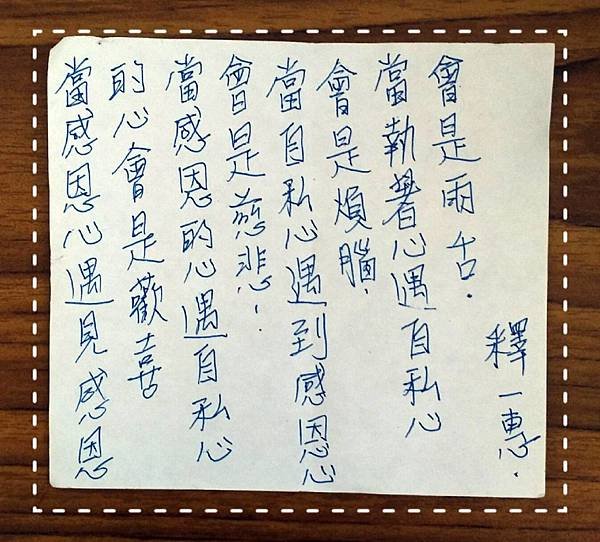 當感恩心遇見感恩
的心會是歡喜
當感恩的心遇自私心
會是慈悲.
當自私心遇到感恩心
會是煩腦.
當執著心遇自私心
會是雨舌.
釋一惠.